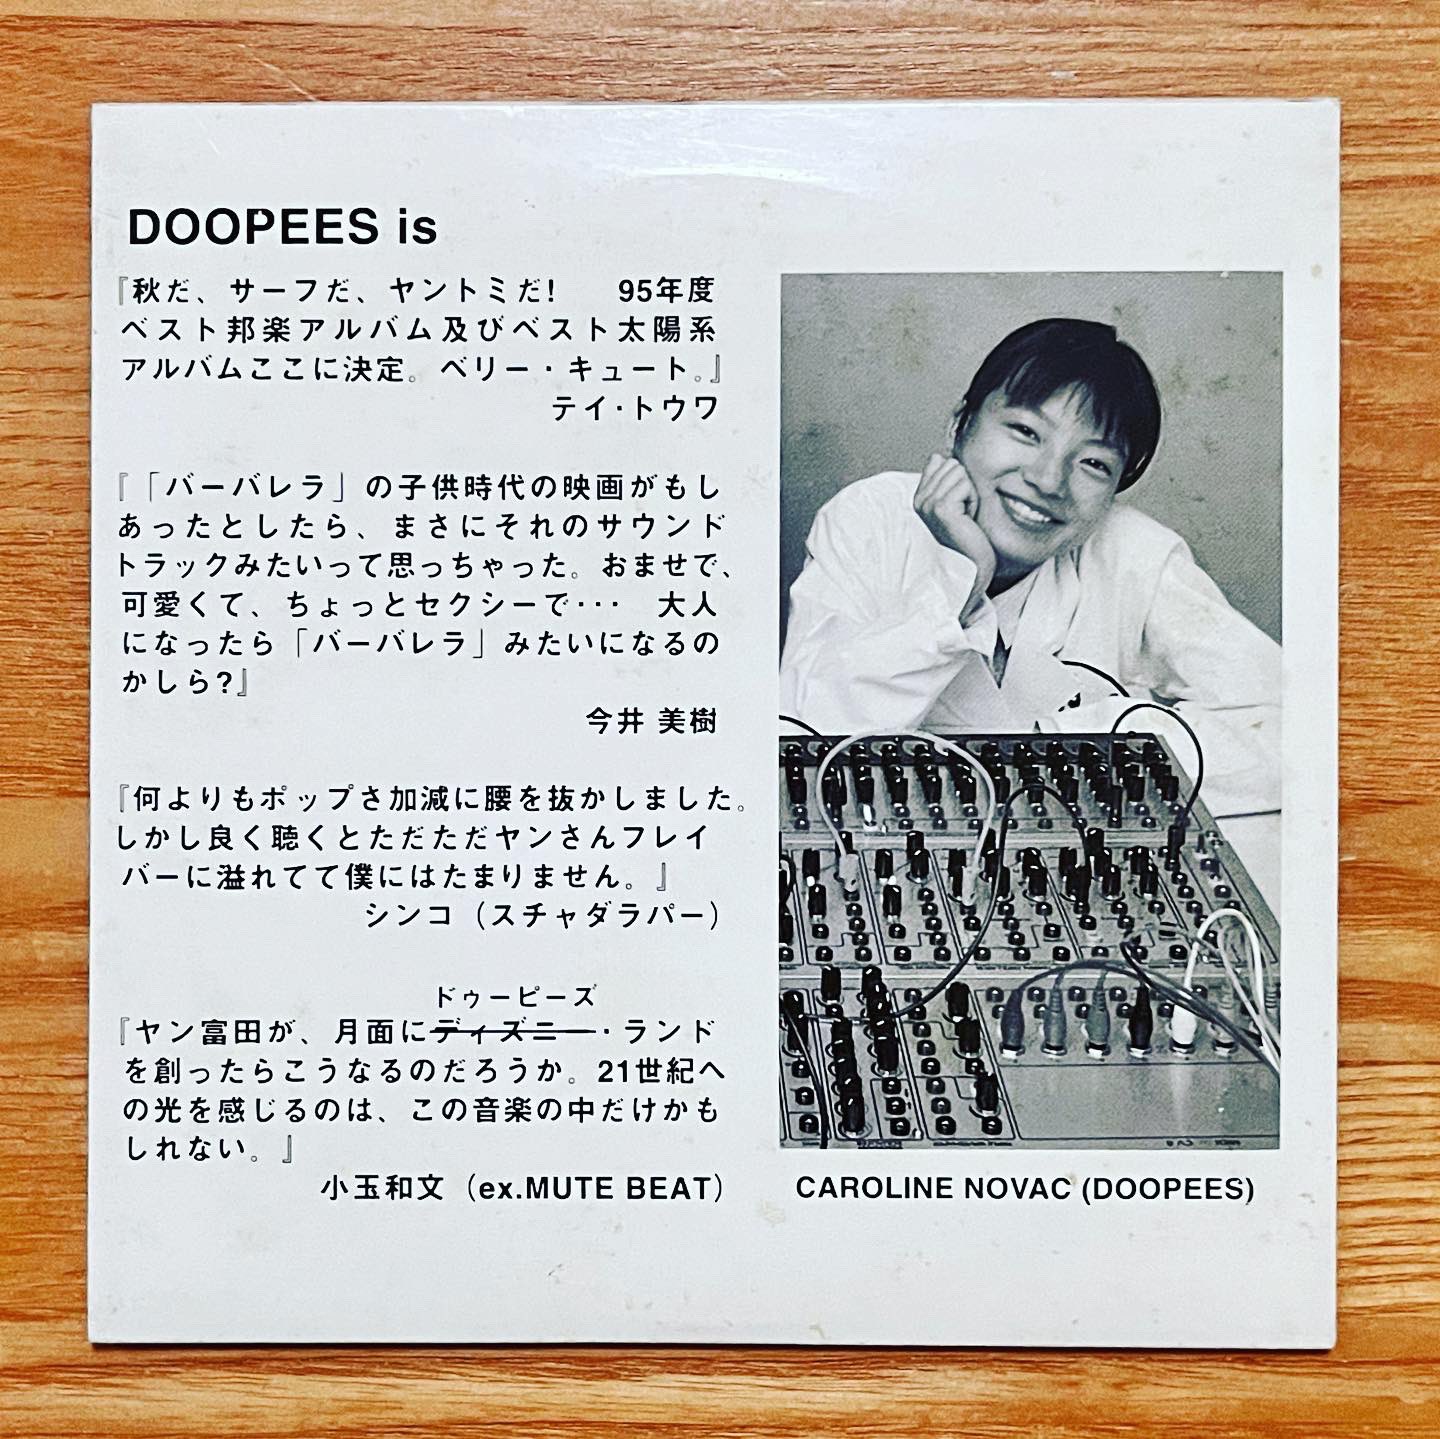 DOOPEES is
『秋だ、サーフだ、ヤントミだ!　95年度
ベスト邦楽アルバム及びベスト太陽系
アルバムここに決定。ベリー・キュート。』
テイ・トウワ
『「バーバレラ」の子供時代の映画がもし
あったとしたら、まさにそれのサウンド
トラックみたいって思っちゃった。おませで、
可愛くて、ちょっとセクシーで･･･　大人
になったら「バーバレラ」みたいになるの
かしら?』
今井 美樹
『何よりもポップさ加減に腰を抜かしました。
しかし良く聴くとただただヤンさんフレイ
バーに溢れてて僕にはたまりません。』
シンコ（スチャダラパー）
ドゥーピーズ
『ヤン富田が、月面にディズニー・ランド
を創ったらこうなるのだろうか。21世紀へ
の光を感じるのは、この音楽の中だけかも
しれない。』
小玉和文（ex.MUTE BEAT）
CAROLINE NOVAC (DOOPEES)